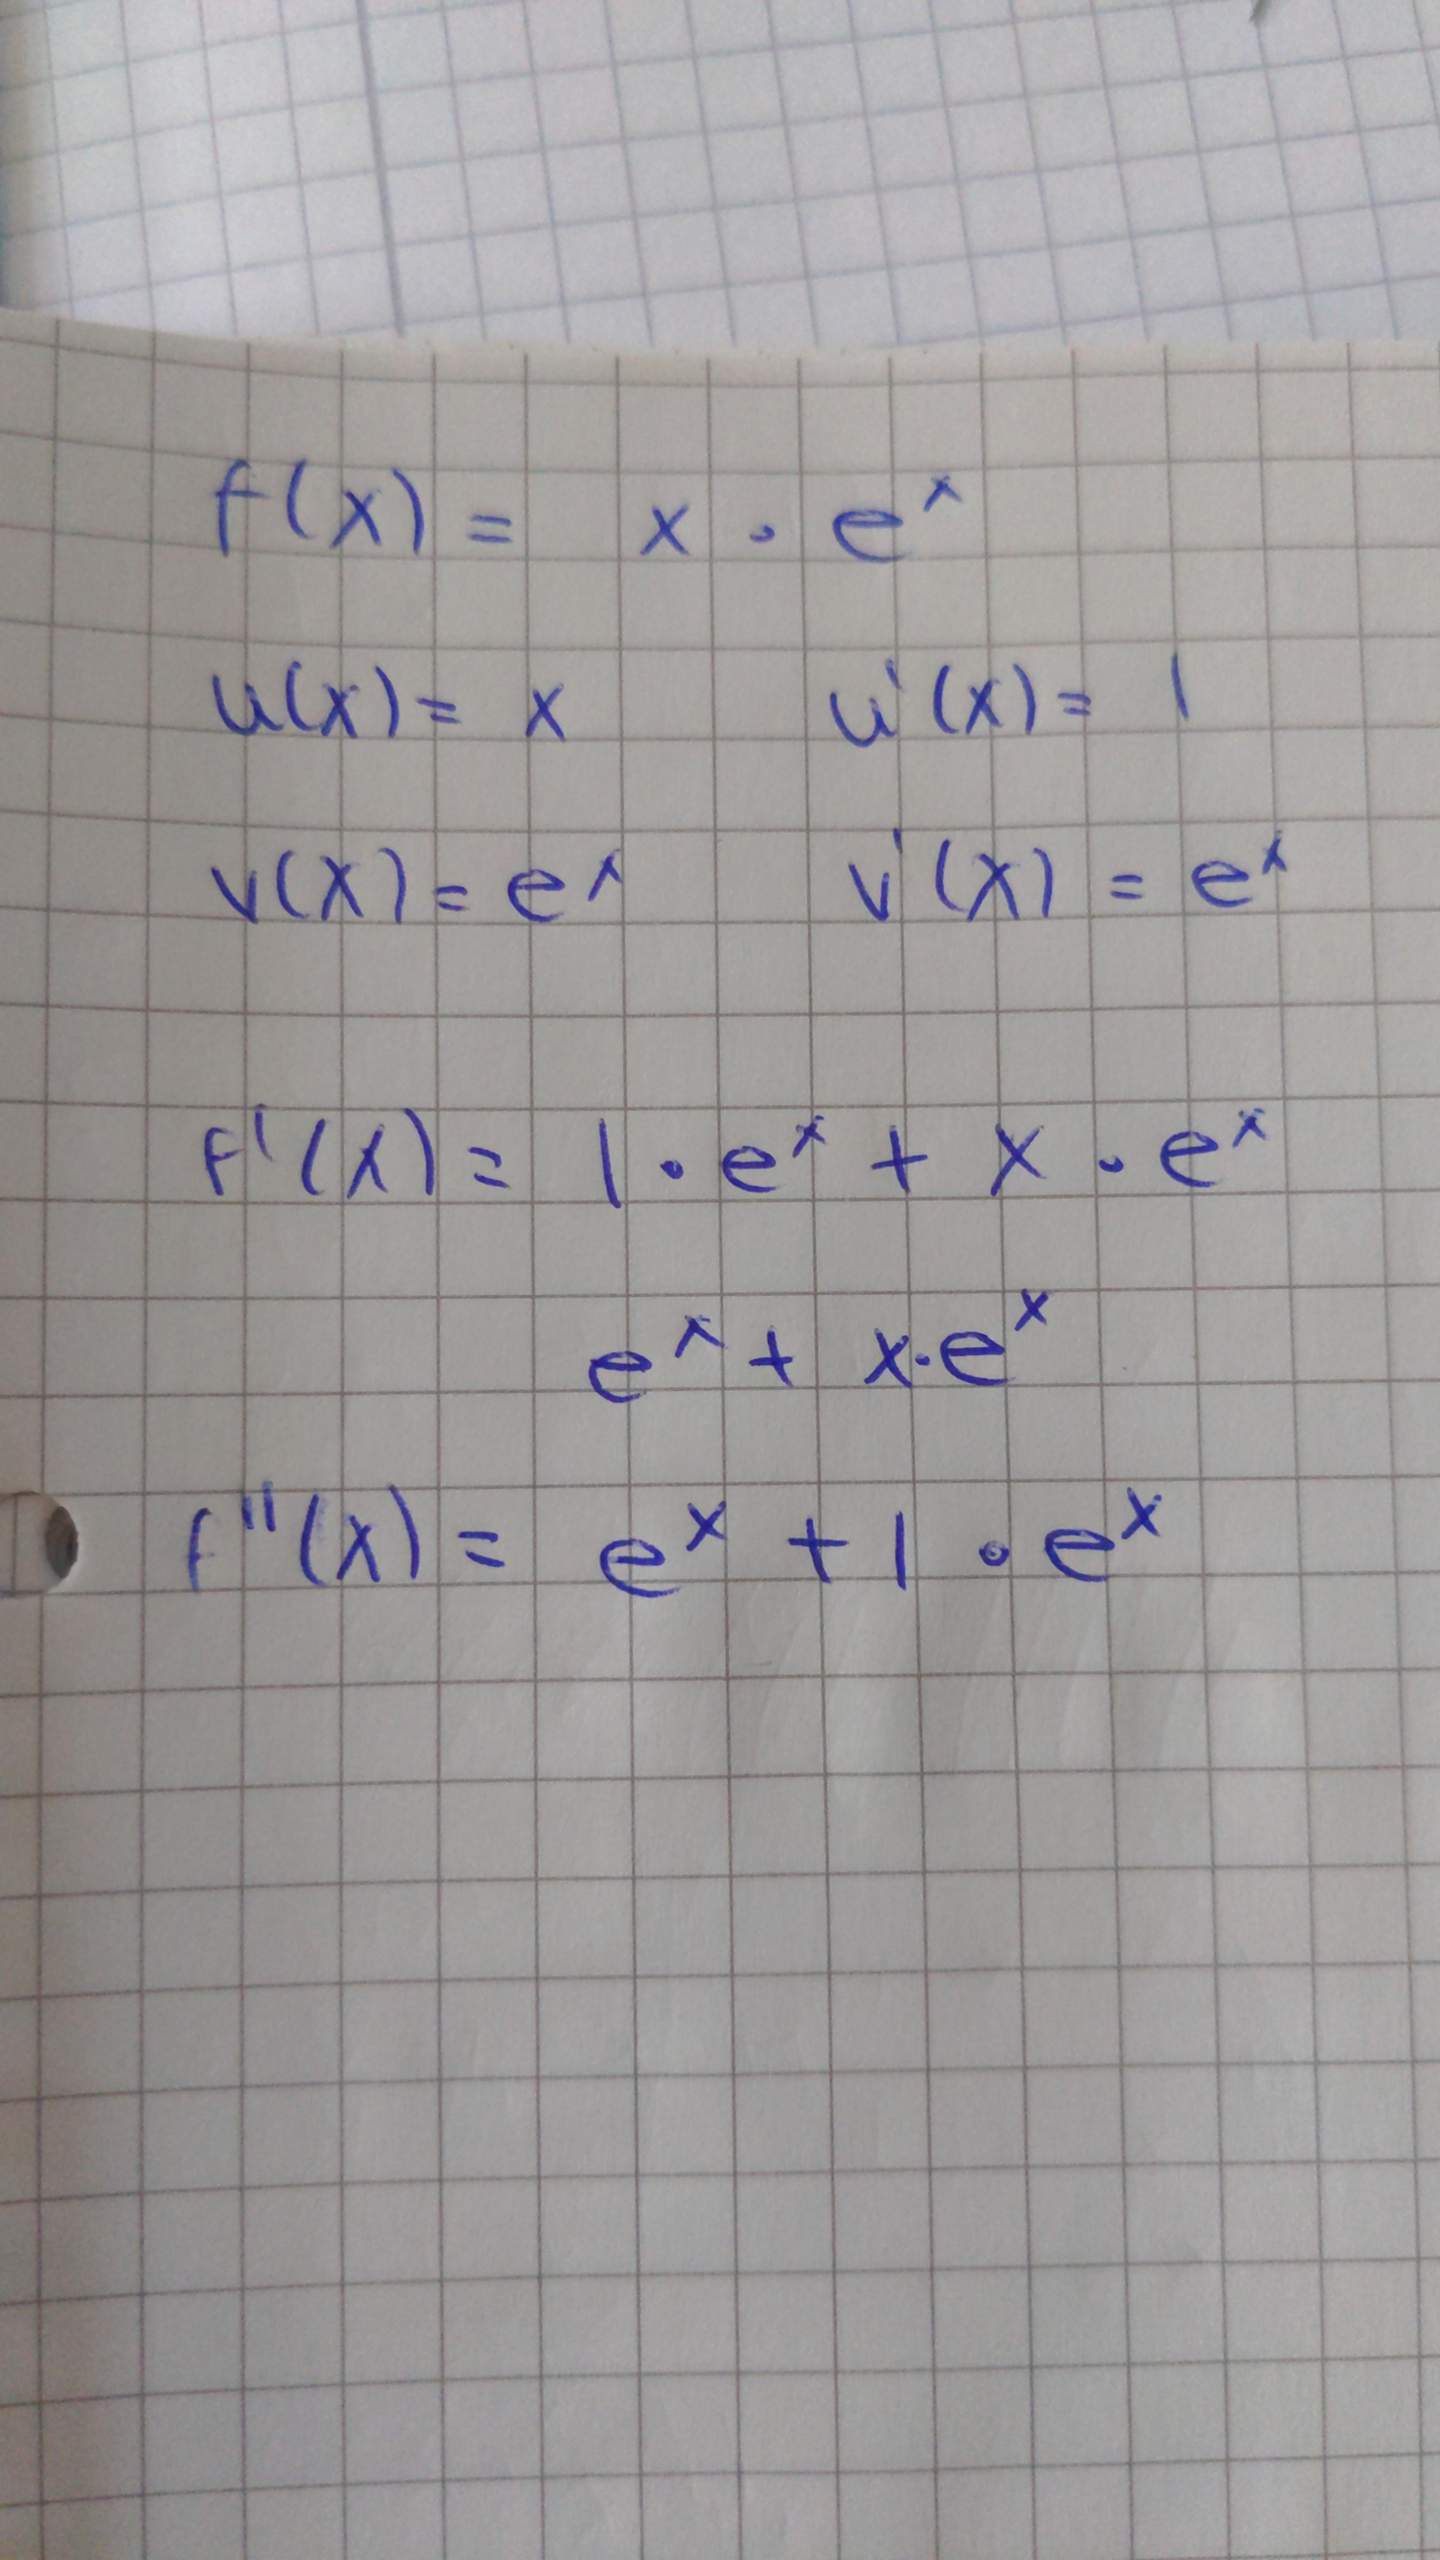 f(x) = x · eˣ
u(x) = x u'(x) = 1
v(x) = eˣ v'(x) = eˣ
f'(x) = 1 · eˣ + x · eˣ
eˣ + x · eˣ
f''(x) = eˣ + 1 · eˣ